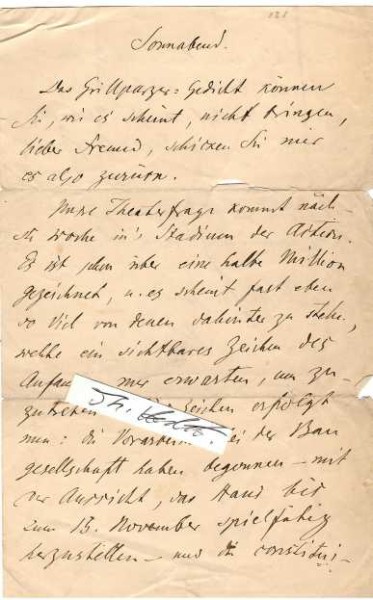 Sonnabend.
Das Grillparzer-Gedicht können
Sie, wie es scheint, nicht bringen,
lieber Freund, schicken Sie mir
es also zurück.
Unsre Theaterfrage kommt näch-
ste Woche in's Stadium der Action.
Es ist schon über eine halbe Million
gezeichnet, u. es scheint fast eben
so viel von denen dahinter zu stehn,
welche ein sichtbares Zeichen des
nur erwarten, um zu-
zutreten Zeichen erfolgt
nun: die bei der Bau
gesellschaft haben begonnen – mit
der Aussicht, das Haus bis
zum 15. November spielfähig
herzustellen – und die constitui-